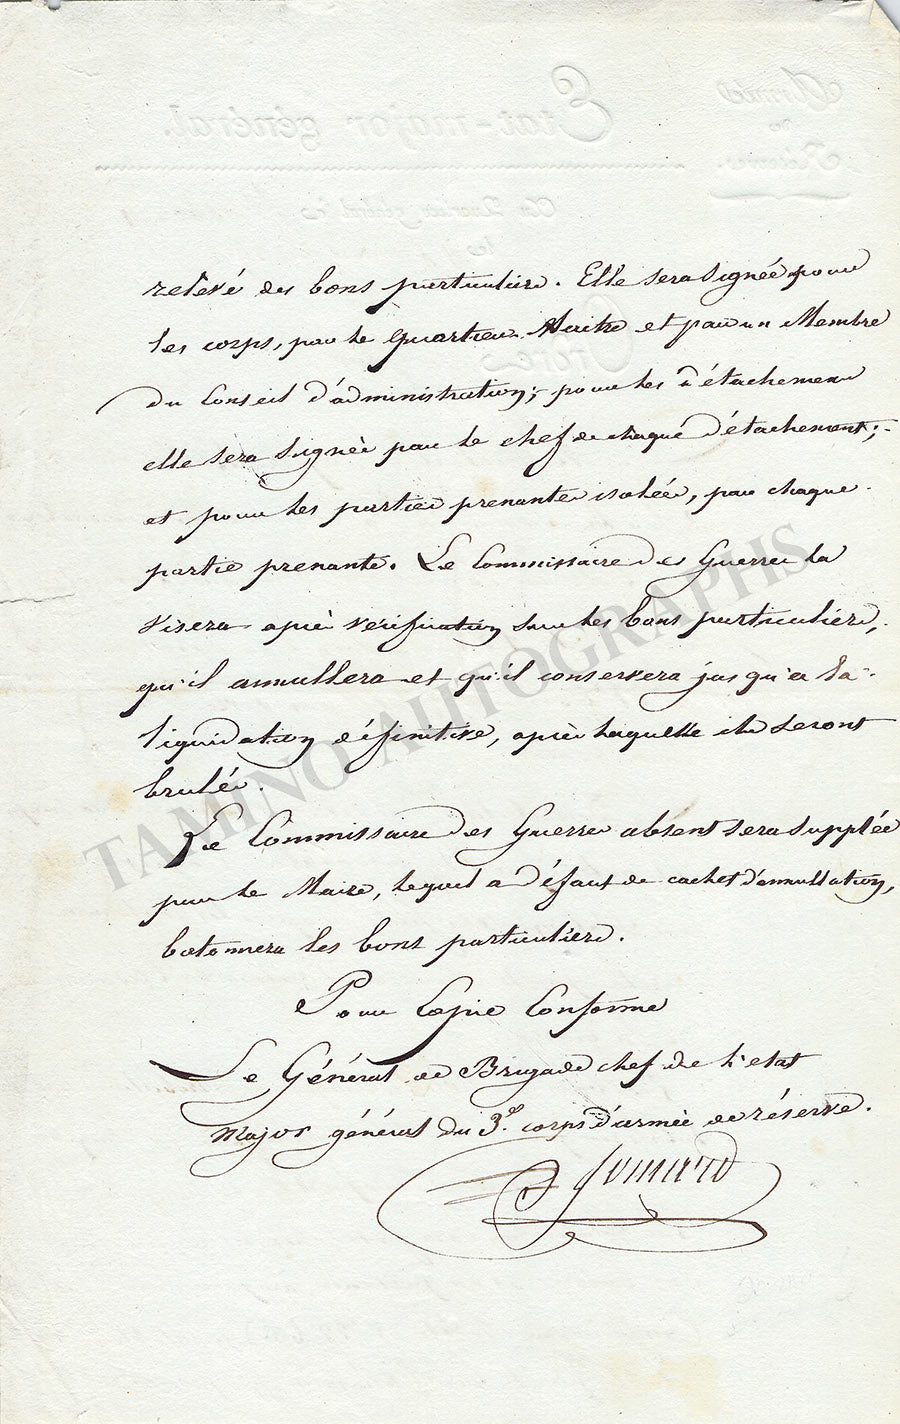 relevé des bons particuliers. Elle sera signée pour
les corps, par le Quartier Maitre et par un Membre
du Conseil d'administration; pour les détachemens
elle sera signée par le chef de chaque détachement;
et pour les parties prenantes isolées, par chaque
partie prenante. Le Commissaire des Guerres la
visera après vérification sur les bons particuliers,
qu'il annullera et qu'il conservera jusqu'a la
liquidation définitive, après laquelle ils seront
brulés.
Le Commissaire des Guerres absent sera supplée
par le Maire, lequel a défaut de cachet d'annullation,
batonnera les bons particuliers.
Pour Copie Conforme
Le Général de Brigade chef de l'etat
major général du 3e. corps d'armée de réserve.
TAMINO AUTOGRAPHS
Etat-major général.
Armée
de
Au Quartier général